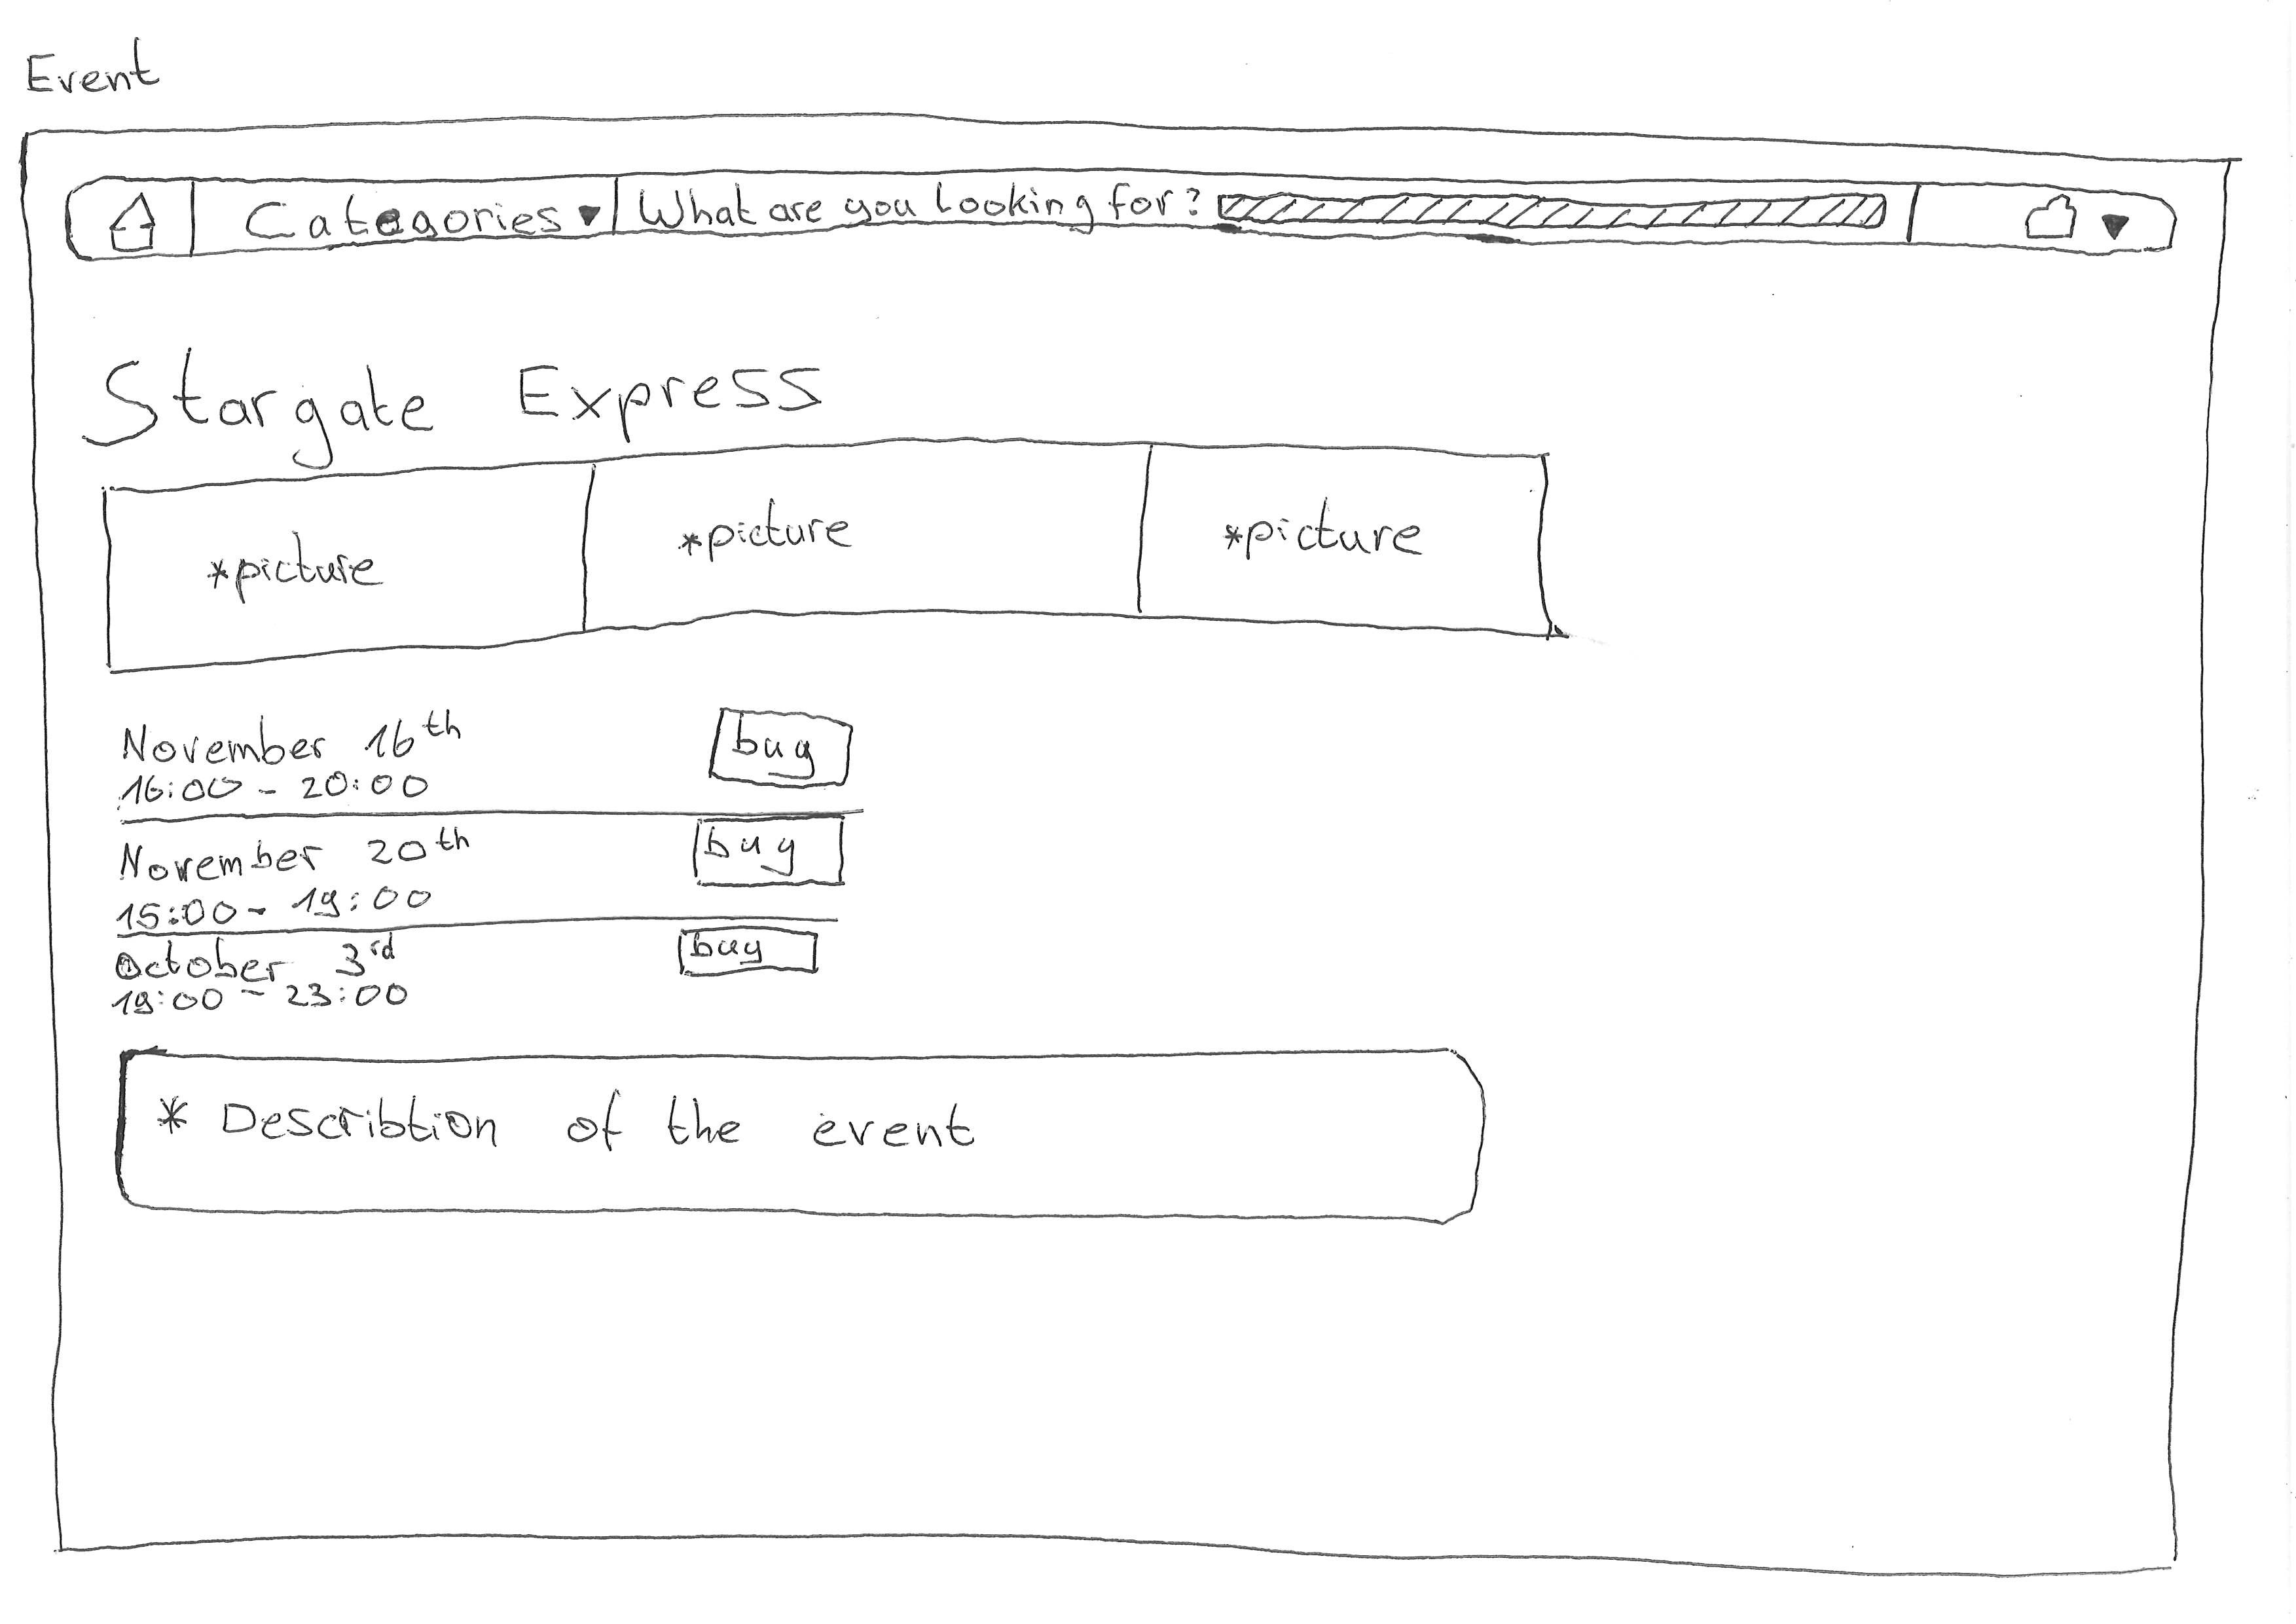 Event
Categories▾ What are you looking for?
Stargate Express
*picture *picture *picture
November 16th buy
16:00 - 20:00
November 20th buy
15:00 - 19:00
October 3rd buy
19:00 - 23:00
* Describtion of the event